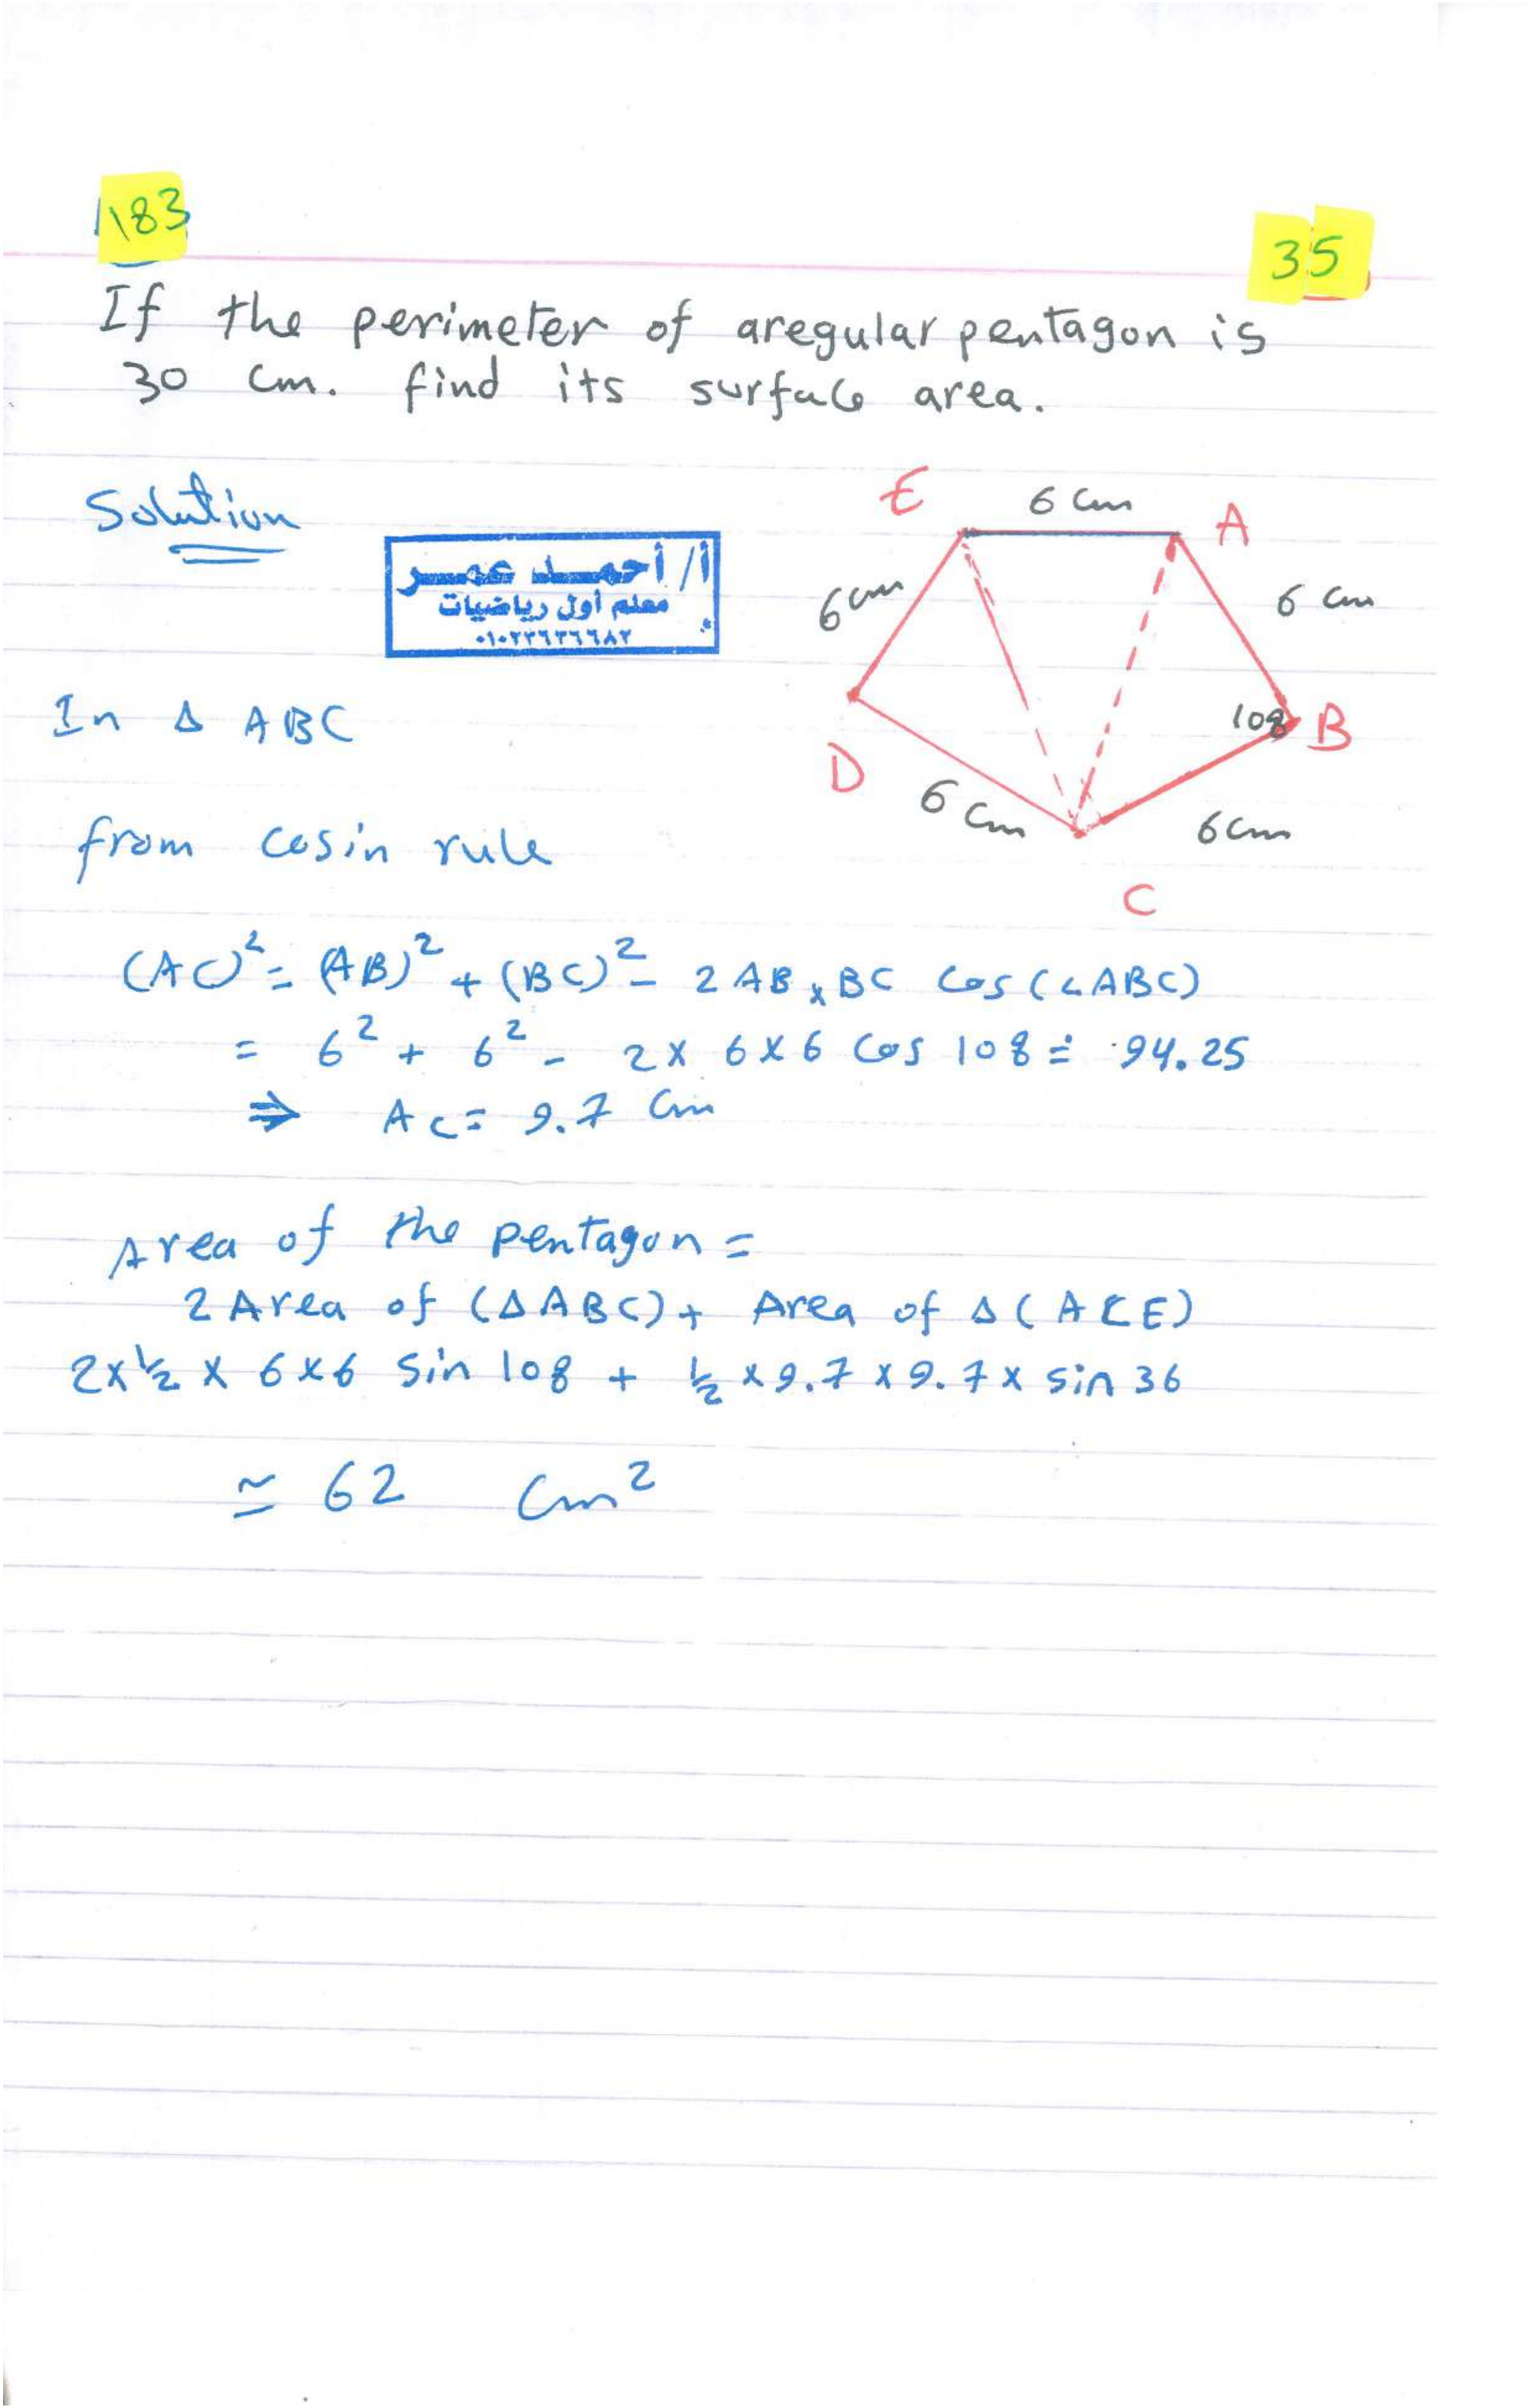 183
35
If the perimeter of aregular pentagon is
30 cm. find its surface area.
Solution
أ/ أحمد عمر
معلم أول رياضيات
٠١٠٢٢٦٢٦٦٨٢
E 6 cm A
6 cm 6 cm
108 B
D 6 cm 6 cm
C
In Δ ABC
from cosin rule
(AC)² = (AB)² + (BC)² - 2 AB × BC cos (∠ABC)
= 6² + 6² - 2 × 6 × 6 cos 108 ≐ 94.25
⇒ AC = 9.7 cm
Area of the pentagon =
2 Area of (Δ ABC) + Area of Δ (ACE)
2 × ½ × 6 × 6 sin 108 + ½ × 9.7 × 9.7 × sin 36
≃ 62 cm²